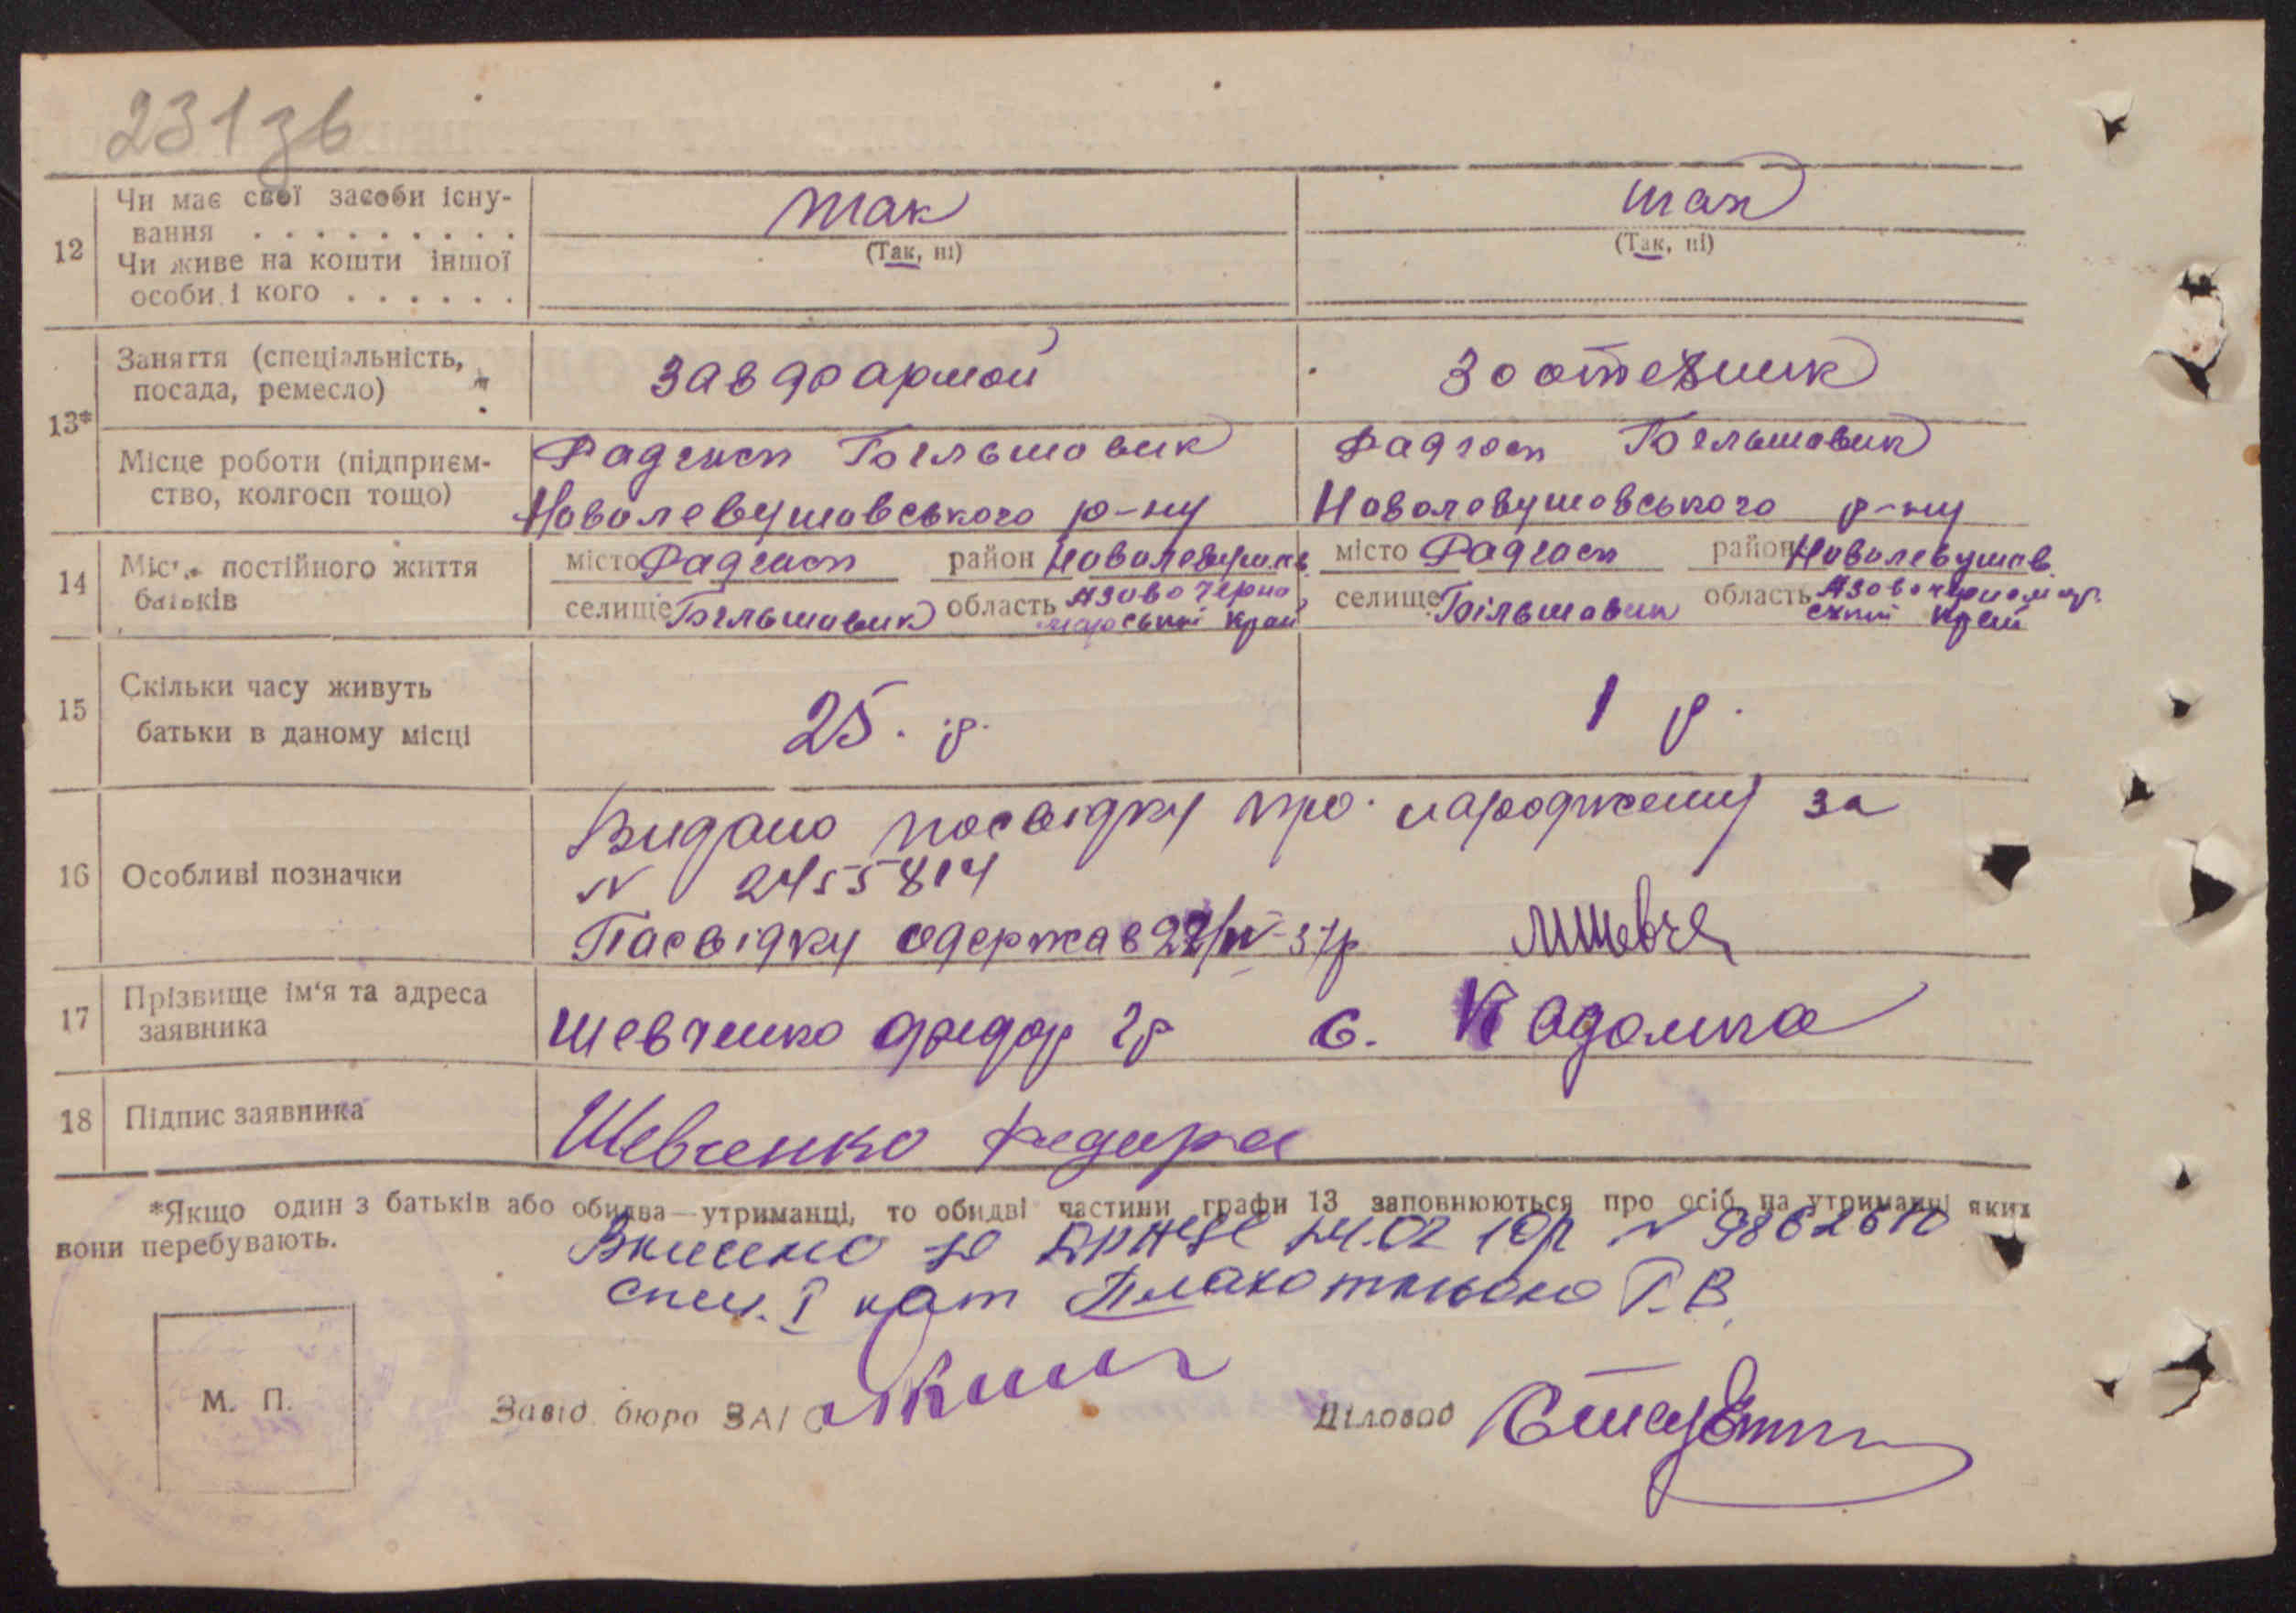 231зв
12 Чи має свої засоби існу-
вання . . . . . . . . .
так
(Так, ні)
так
(Так, ні)
Чи живе на кошти іншої
особи і кого . . . . . .
13* Заняття (спеціальність,
посада, ремесло)
завфармой
зоотехник
Місце роботи (підприєм-
ство, колгосп тощо)
Радгосп Більшовик
Новолевушовського р-ну
Радгосп Більшовик
Новолевушовського р-ну
14 Місце постійного життя
батьків
місто Радгосп район Новолевушов.
селище Більшовик область Азово Черно
морський край
місто Радгосп район Новолевушов.
селище Більшовик область Азовочерномор.
ский край
15 Скільки часу живуть
батьки в даному місці
25. р.
1 р.
16 Особливі позначки
Видано посвідку про народжену за
N 2455814
Посвідку одержав 27/IV-37р
17 Прізвище ім'я та адреса
заявника
Шевченко Федор с. Кадомка
18 Підпис заявника
Шевченко Федора
*Якщо один з батьків або обидва—утриманці, то обидві частини графи 13 заповнюються про осіб, на утриманні яких
вони перебувають.
Внесено до ДРАЦС 24.02 10р N 9862610
спец. I кат Плахотнікою Г.В.
М. П.
Завід. бюро ЗАГС
Діловод